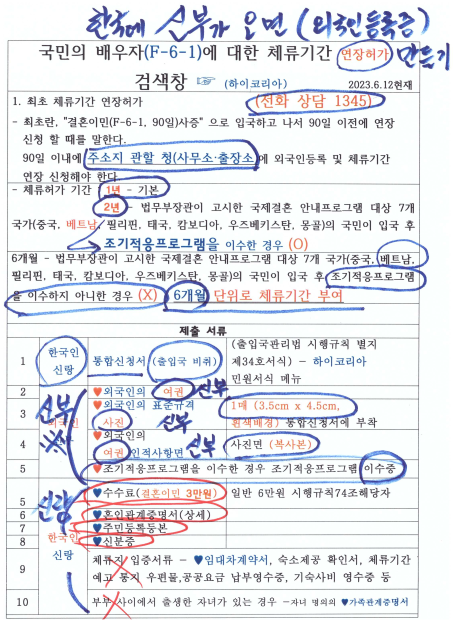 한국에 신부가 오면 (외국인등록증)
국민의 배우자(F-6-1)에 대한 체류기간 연장허가 만들기
검색창 ☞ (하이코리아) 2023.6.12현재
1. 최초 체류기간 연장허가 (전화 상담 1345)
- 최초란, "결혼이민(F-6-1, 90일)사증" 으로 입국하고 나서 90일 이전에 연장
신청 할 때를 말한다.
90일 이내에 주소지 관할 청(사무소·출장소)에 외국인등록 및 체류기간
연장 신청해야 한다.
- 체류허가 기간 1년 - 기본
2년 - 법무부장관이 고시한 국제결혼 안내프로그램 대상 7개
국가(중국, 베트남, 필리핀, 태국, 캄보디아, 우즈베키스탄, 몽골)의 국민이 입국 후
조기적응프로그램을 이수한 경우 (O)
6개월 - 법무부장관이 고시한 국제결혼 안내프로그램 대상 7개 국가(중국, 베트남,
필리핀, 태국, 캄보디아, 우즈베키스탄, 몽골)의 국민이 입국 후 조기적응프로그램
을 이수하지 아니한 경우 (X) 6개월 단위로 체류기간 부여
제출 서류
1 한국인 신랑 통합신청서 (출입국 비취) (출입국관리법 시행규칙 별지
제34호서식) - 하이코리아
민원서식 메뉴
2 ♥외국인의 여권 신부
신부
3 외국인 ♥외국인의 표준규격 사진 신부 1매 (3.5cm x 4.5cm,
흰색배경) 통합신청서에 부착
4 ♥외국인의 여권 인적사항면 신부 사진면 (복사본)
5 ♥조기적응프로그램을 이수한 경우 조기적응프로그램 이수증
신랑
5 ♥수수료(결혼이민 3만원) 일반 6만원 시행규칙74조해당자
6 ♥혼인관계증명서(상세)
7 ♥주민등록등본
8 한국인 신랑 ♥신분증
9 체류지 입증서류 - ♥임대차계약서, 숙소제공 확인서, 체류기간
예고 통지 우편물,공공요금 납부영수증, 기숙사비 영수증 등
10 부부 사이에서 출생한 자녀가 있는 경우 -자녀 명의의 ♥가족관계증명서